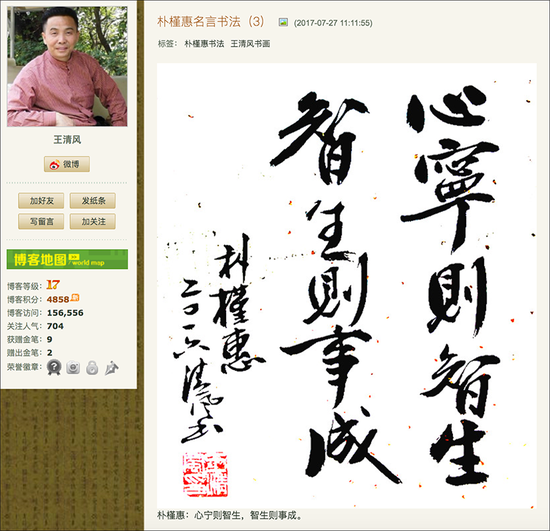 王清风
微博
加好友 发纸条
写留言 加关注
博客地图 world map
博客等级: 17
博客积分: 4858
博客访问: 156,556
关注人气: 704
获赠金笔: 9
赠出金笔: 2
荣誉徽章:
朴槿惠名言书法（3） (2017-07-27 11:11:55)
标签: 朴槿惠书法 王清风书画
心寧則智生
智生則事成
朴槿惠
二〇一六清風书
朴槿惠: 心宁则智生，智生则事成。